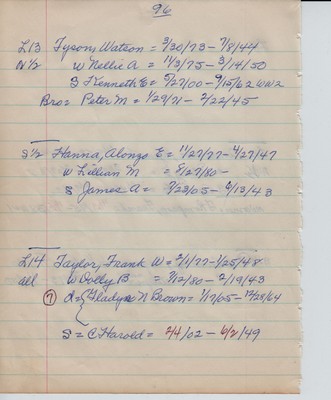 96
L13 Tyson, Watson = 3/30/73 - 7/8/44
N 1/2 W Nellie A = 11/3/75 - 3/14/50
S Kenneth E = 5/27/00 - 9/15/62 WW2
Bro = Peter M = 1/29/71 - 2/22/45
S 1/2 Hanna, Alonzo E = 11/27/77 - 4/27/47
W Lillian M = 8/27/80 -
S James A = 8/23/05 - 6/13/43
L14 Taylor, Frank W = 2/1/77 - 1/25/48
all W Dolly B = 7/12/80 - 2/19/43
7 d = Gladys N Brown = 1/17/05 - 12/28/64
S = C Harold = 2/4/02 - 6/2/49